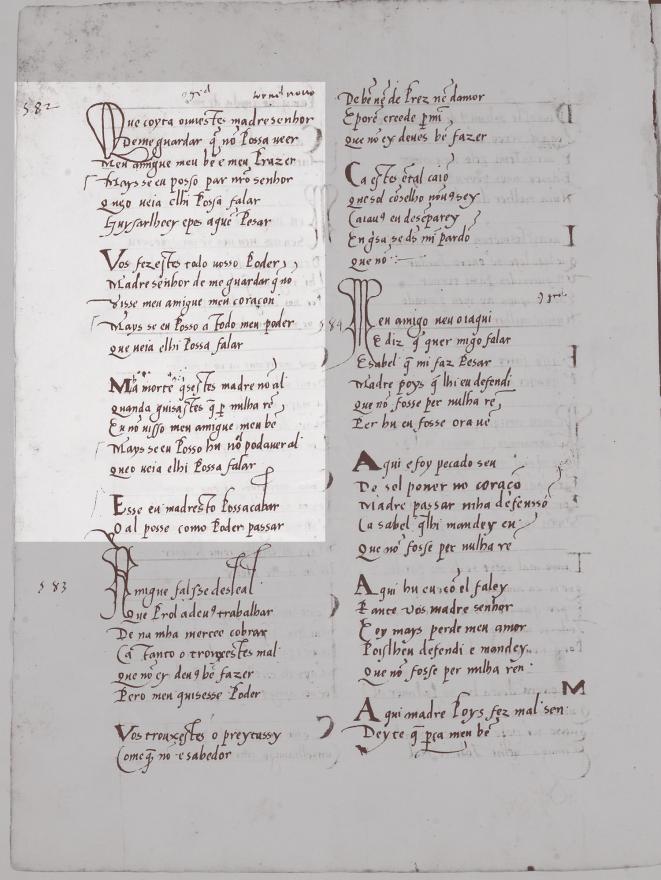 582
Que coyta ouuestes madre senhor
De me guardar q̄ nō possa veer
Meu amigue meu bē e meu prazer
Mays se eu posso par nr̄o senhor
Queo ueia elhi possa falar
Guysarlhoey epes aque pesar
Vos fezestes todo uosso poder
Madre senhor de me guardar q̄ nō
visse meu amigue meu coraçon
Mays se eu posso a todo meu poder
que ueia elhi possa falar
Ma morte q̄sestes madre nō al
quanda guisastes q̄ p̄ nulha rē
Eu nō uisso meu amigue meu bē
Mays se eu posso hu nō podaueral
queo ueia elhi possa falar
Esse eu madresto possacabar
O al posse como poder passar
583
Amigue falsse desleal
Que prol a deu9 trabalhar
De na mha mercee cobrar
Ca tanto o trouxestes mal
que nō ey deu9 bē fazer
Pero meu quisesse poder
Vos trouxestes o preytassy
Come q̄ nō e sabedor
De bē nē de prez nē damor
E porē creede p̄ mi
que nō ey deues bē fazer
Ca estes en tal caio
que sol conselho nou9 sey
Ca iau9 eu desēparey
En gisa se ds̄ mi pardō
que nō
584
Meu amigo ueu oiaqui
E diz q̄ quer migo falar
E sabel q̄ mi faz pesar
Madre poys q̄ lhi eu defendi
que nō fosse per nulha rē
Per hu eu fosse ora uē
Aqui e foy pecado seu
De sol poner no coraçō
Madre passar mha defenssō
Ca sabel q̄ lhi mandey eu
Que nō fosse per nulha rē
Aqui hu eu cō el faley
Eante vos madre senhor
E oy mays perde meu amor
Poislheu defendi e mandey
que nō fosse per nulha ren
Aqui madre poys fez mal sen
Deyte q̄ p̄ça meu bē